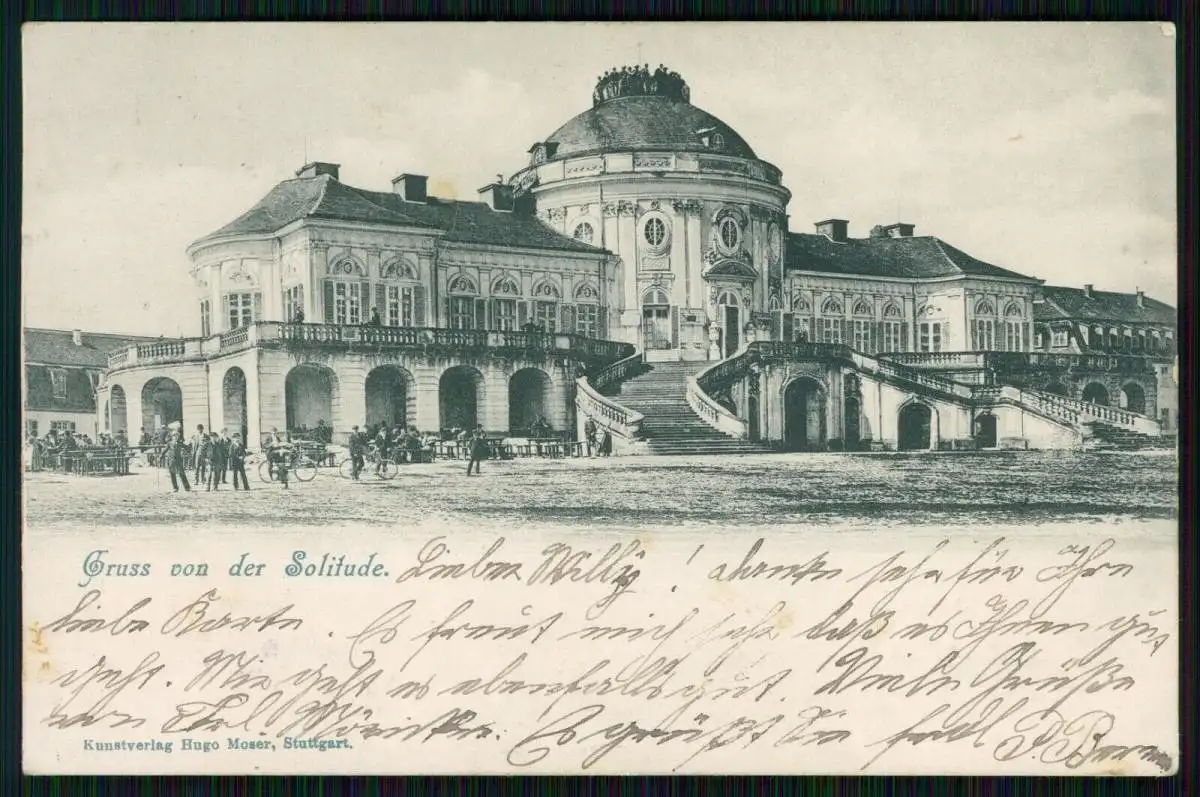 Gruss von der Solitude. Lieber Willy! danke sehr für Ihre
liebe Karte. Es freut mich sehr daß es Ihnen gut
geht. Mir geht es ebenfalls gut. Viele Grüße
von Frl. Es grüßt Sie frdl.
Kunstverlag Hugo Moser, Stuttgart.